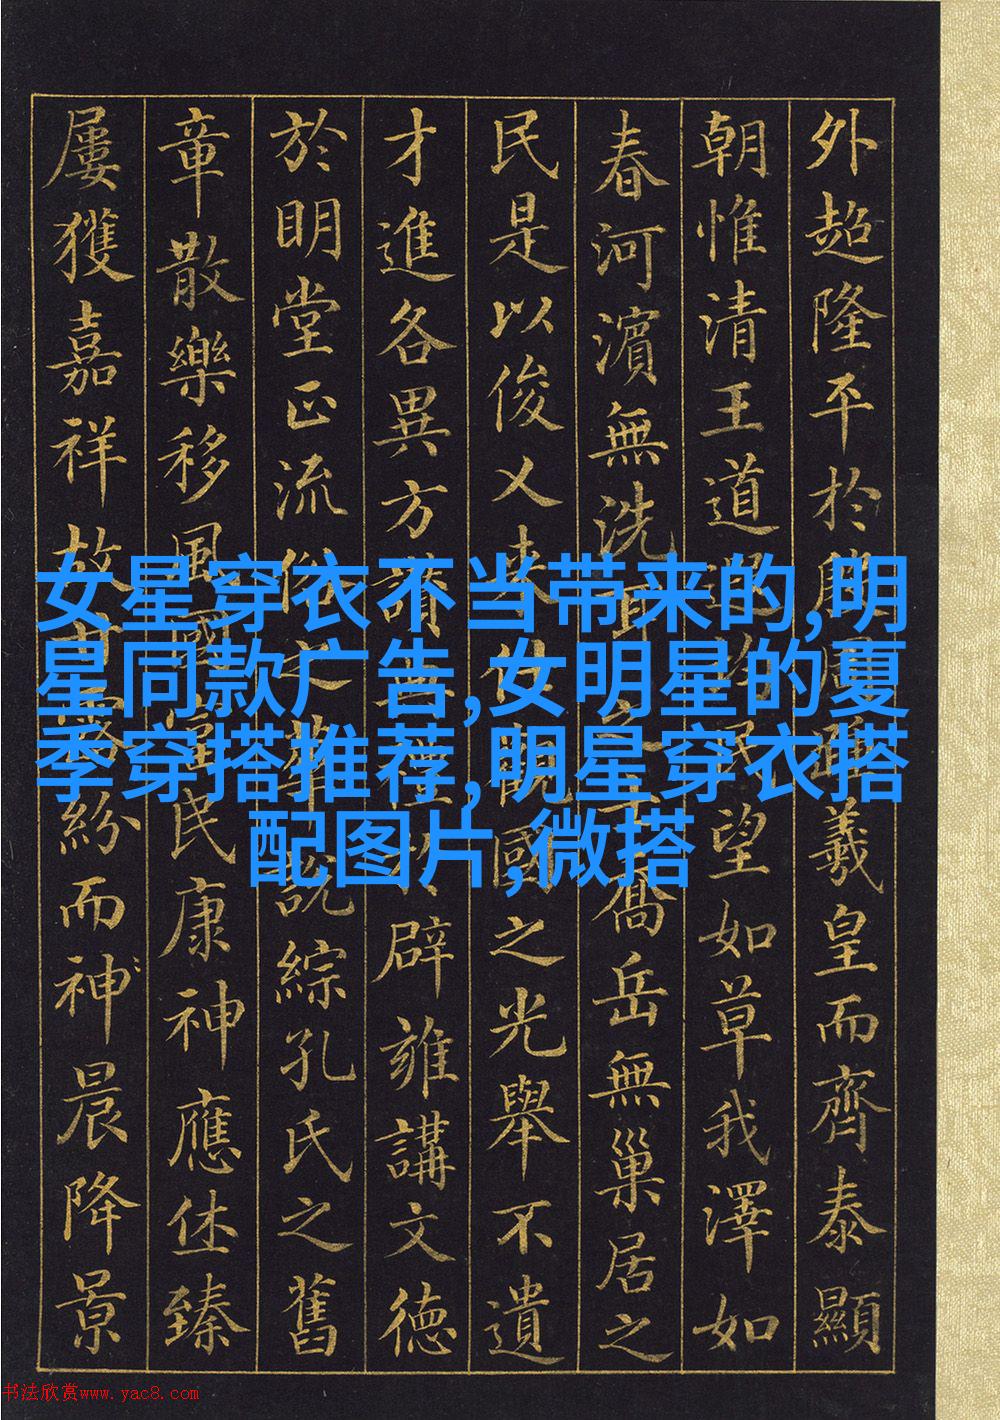 外超隆平於義皇而齊泰顯
朝惟清王道望如草我澤如
春河濱無洗喬岳無巢居之
民是以俊乂来觀國之光舉不遺
才進各異方辟雍講文德
於明堂正流說綜孔氏之舊
章散樂移風國富民康神應休臻
屢獲嘉祥故紛而神晨降景
女星穿衣不当带来的,明
星同款广告,女明星的夏
季穿搭推荐,明星穿衣搭
配图片,微搭
书法欣赏www.yac8.com